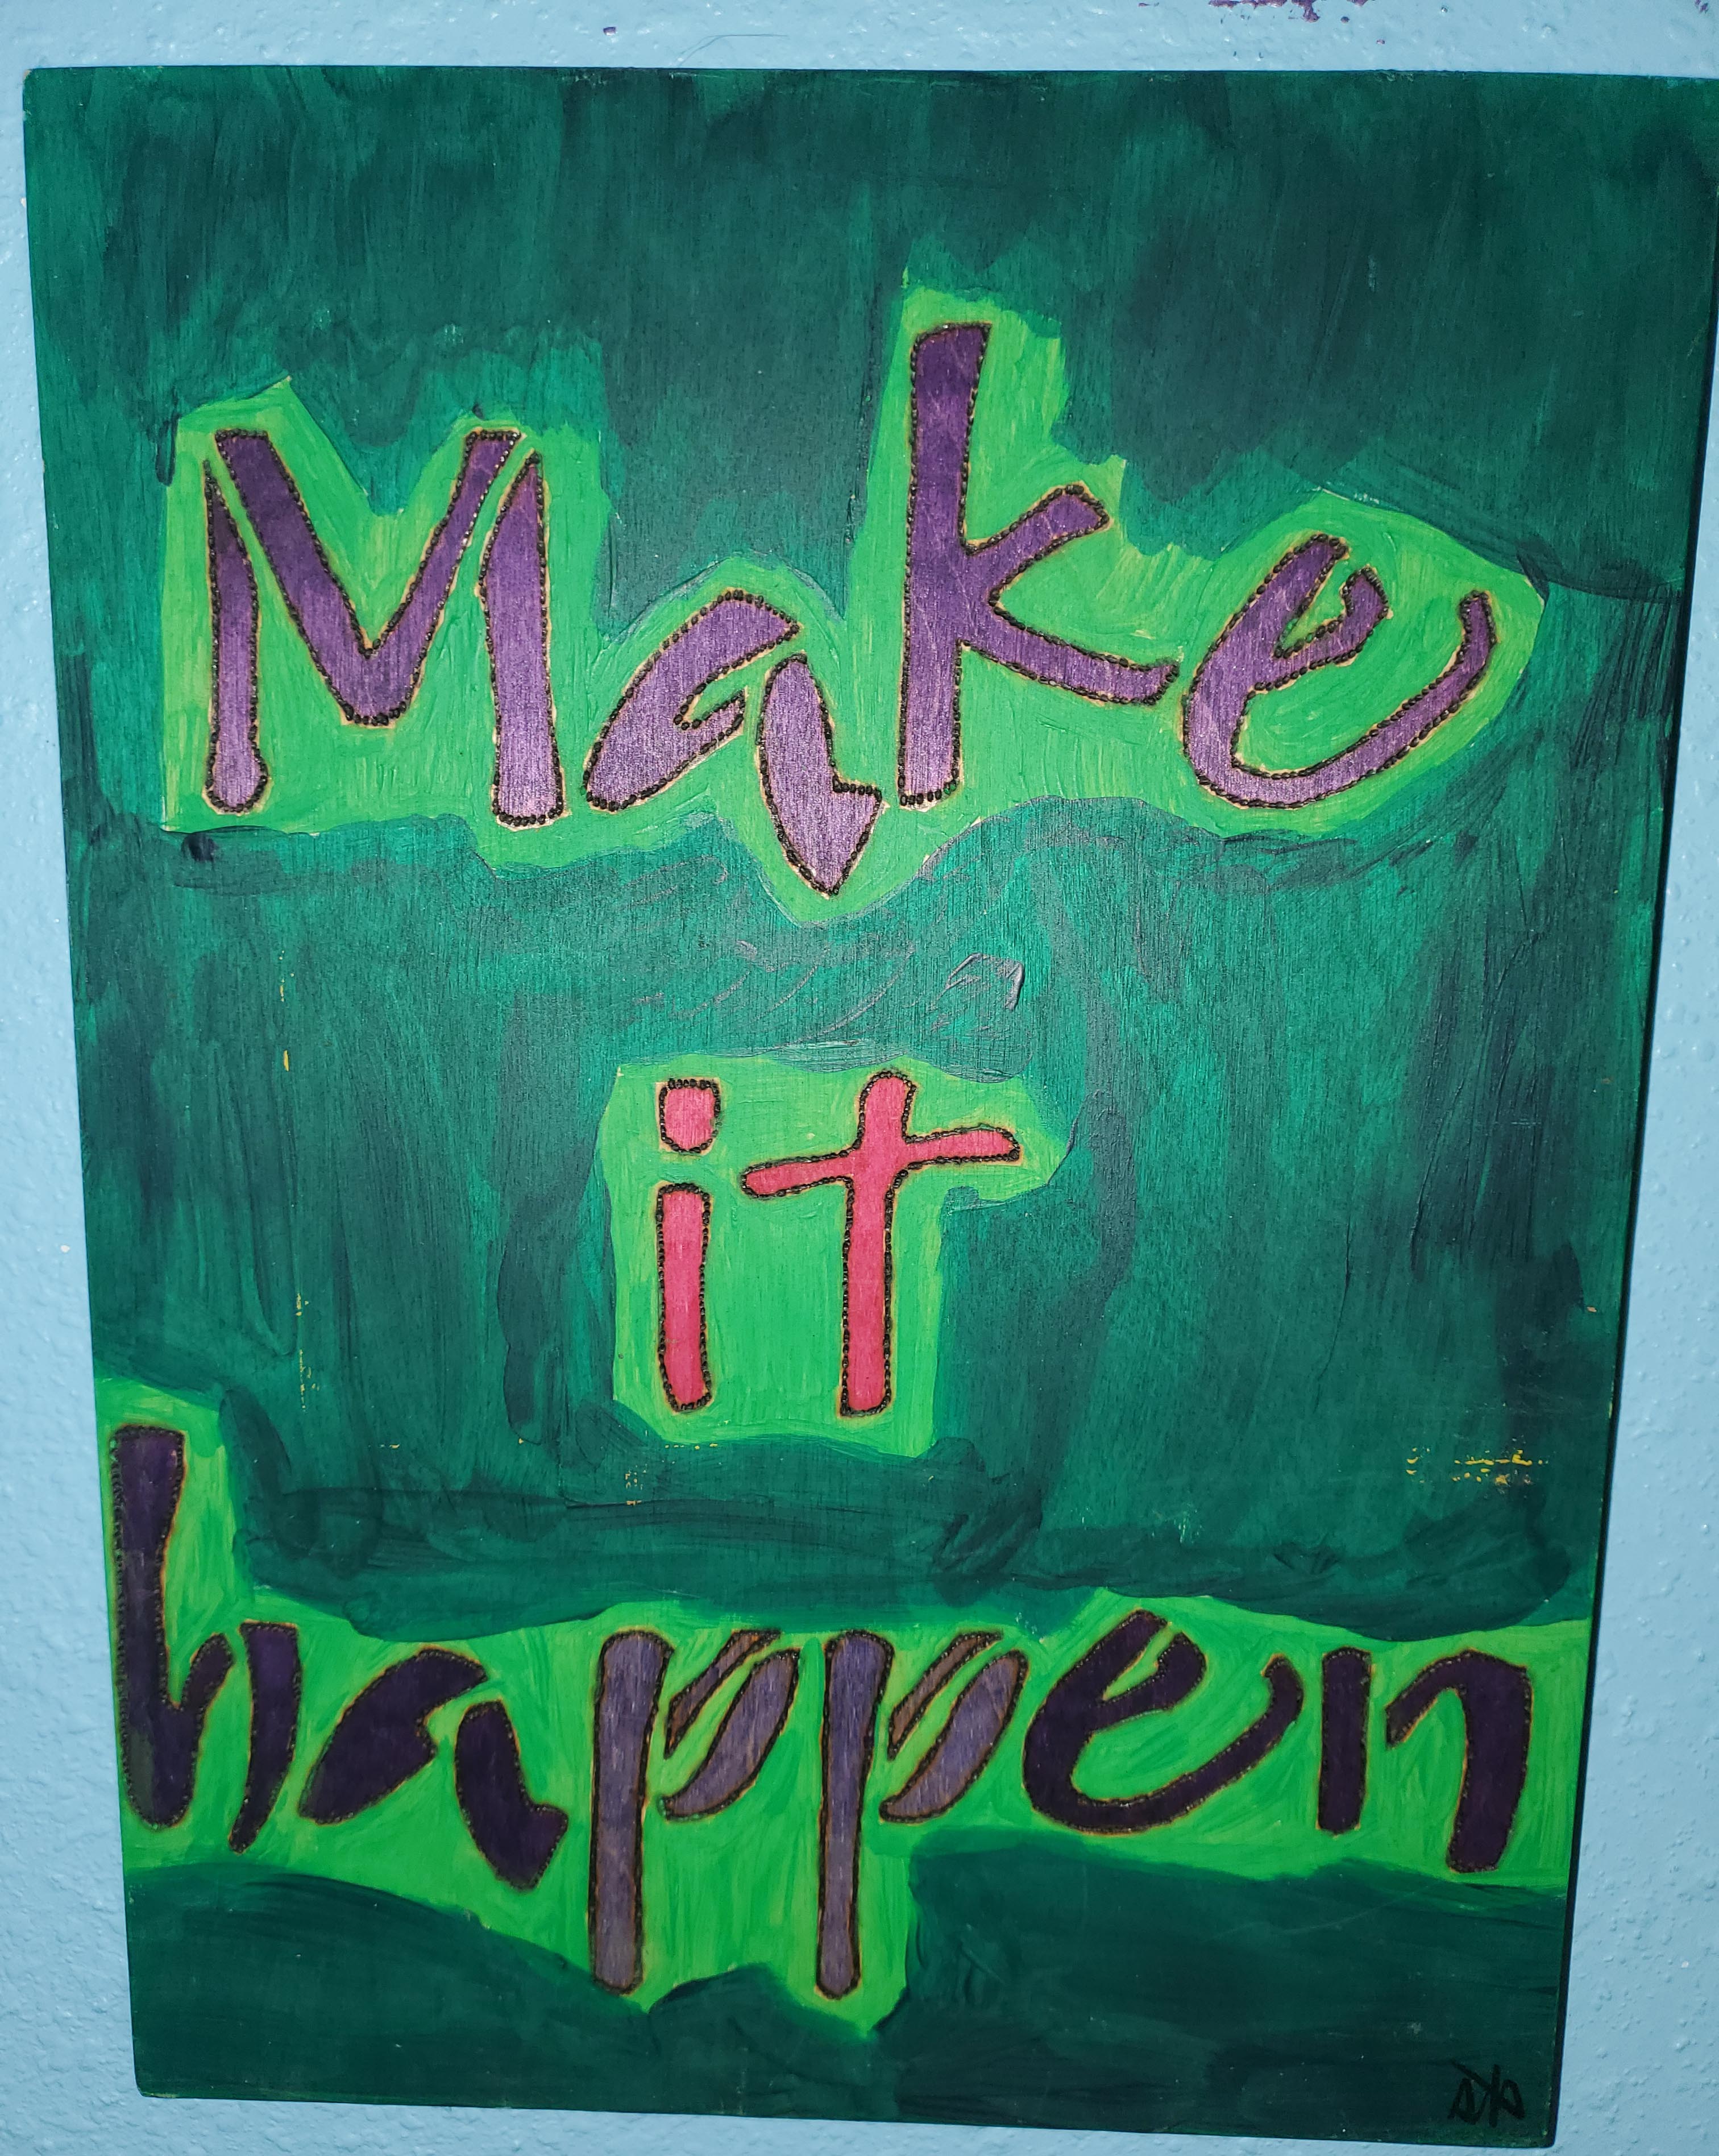 Make
it
happen